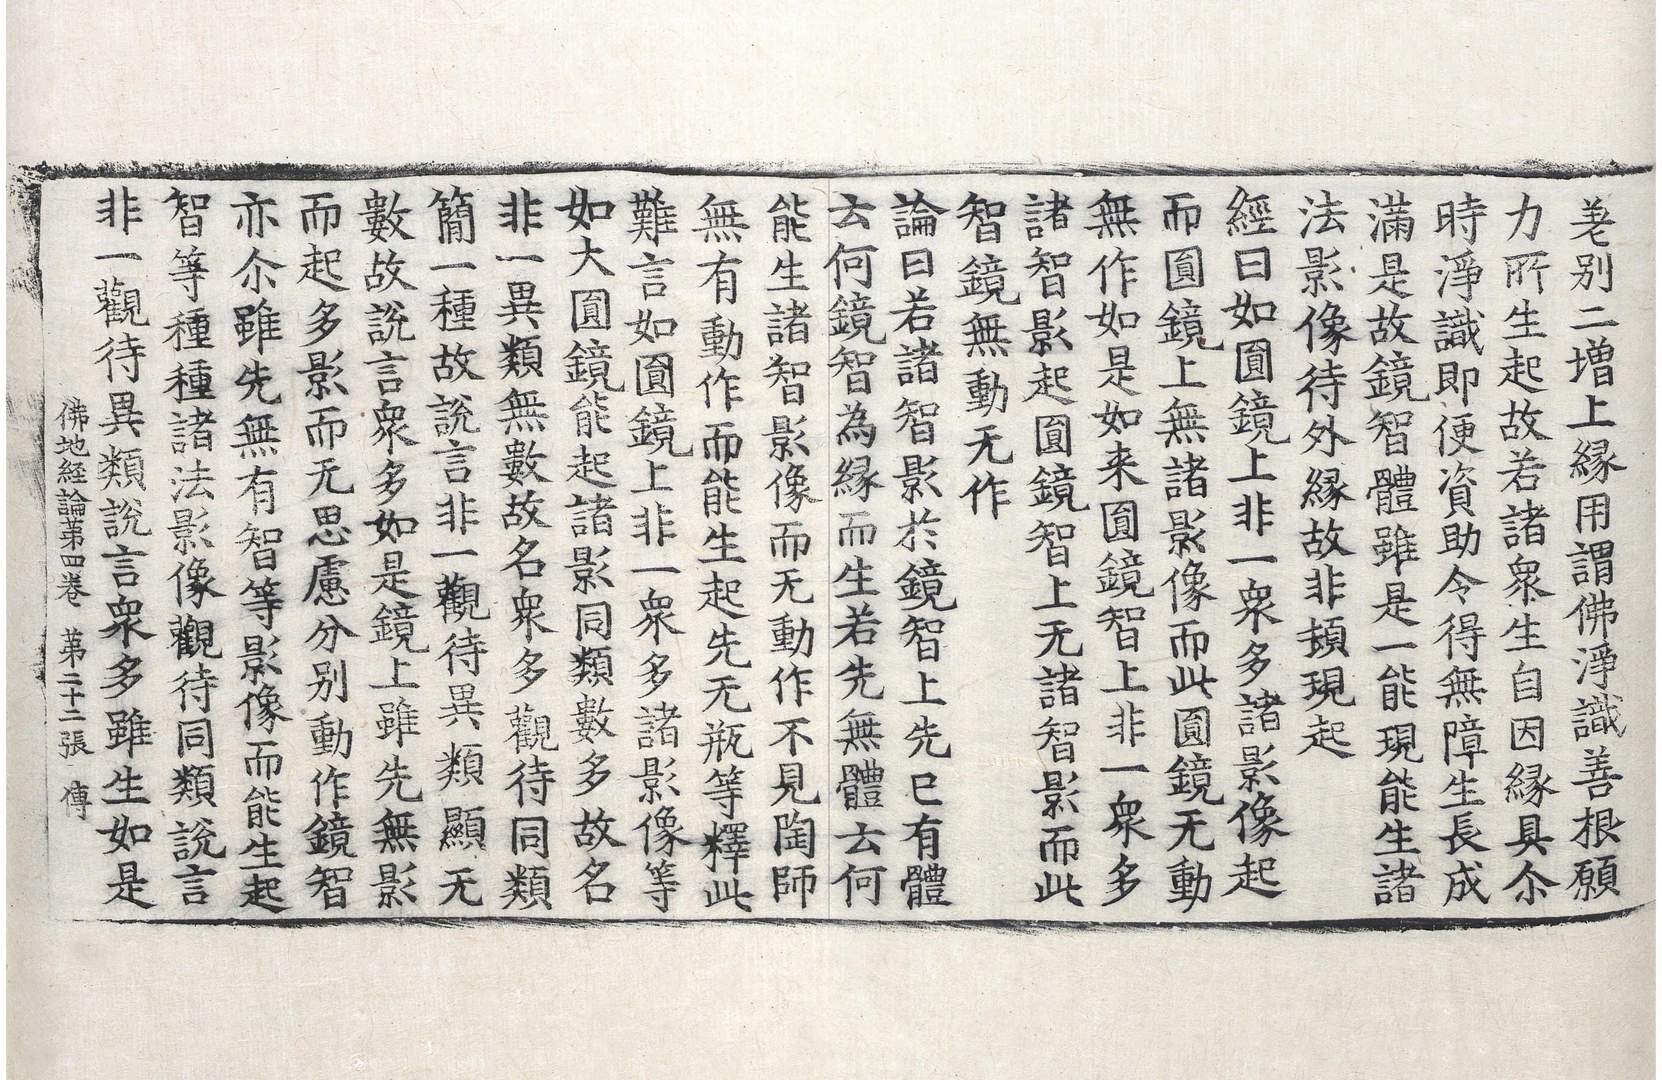 差別二增上縁用謂佛淨識善根願
力所生起故若諸衆生自因縁具尒
時淨識即便資助令得無障生長成
滿是故鏡智體雖是一能現能生諸
法影像待外縁故非頓現起
經曰如圓鏡上非一衆多諸影像起
而圓鏡上無諸影像而此圓鏡无動
無作如是如来圓鏡智上非一衆多
諸智影起圓鏡智上无諸智影而此
智鏡無動无作
論曰若諸智影於鏡智上先已有體
云何鏡智為縁而生若先無體云何
能生諸智影像而无動作不見陶師
無有動作而能生起先无瓶等釋此
難言如圓鏡上非一衆多諸影像等
如大圓鏡能起諸影同類數多故名
非一異類無數故名衆多觀待同類
簡一種故說言非一觀待異類顯无
數故說言衆多如是鏡上雖先無影
而起多影而无思慮分别動作鏡智
亦尒雖先無有智等影像而能生起
智等種種諸法影像觀待同類說言
非一觀待異類說言衆多雖生如是
佛地經論苐四卷　苐二十二張　傳